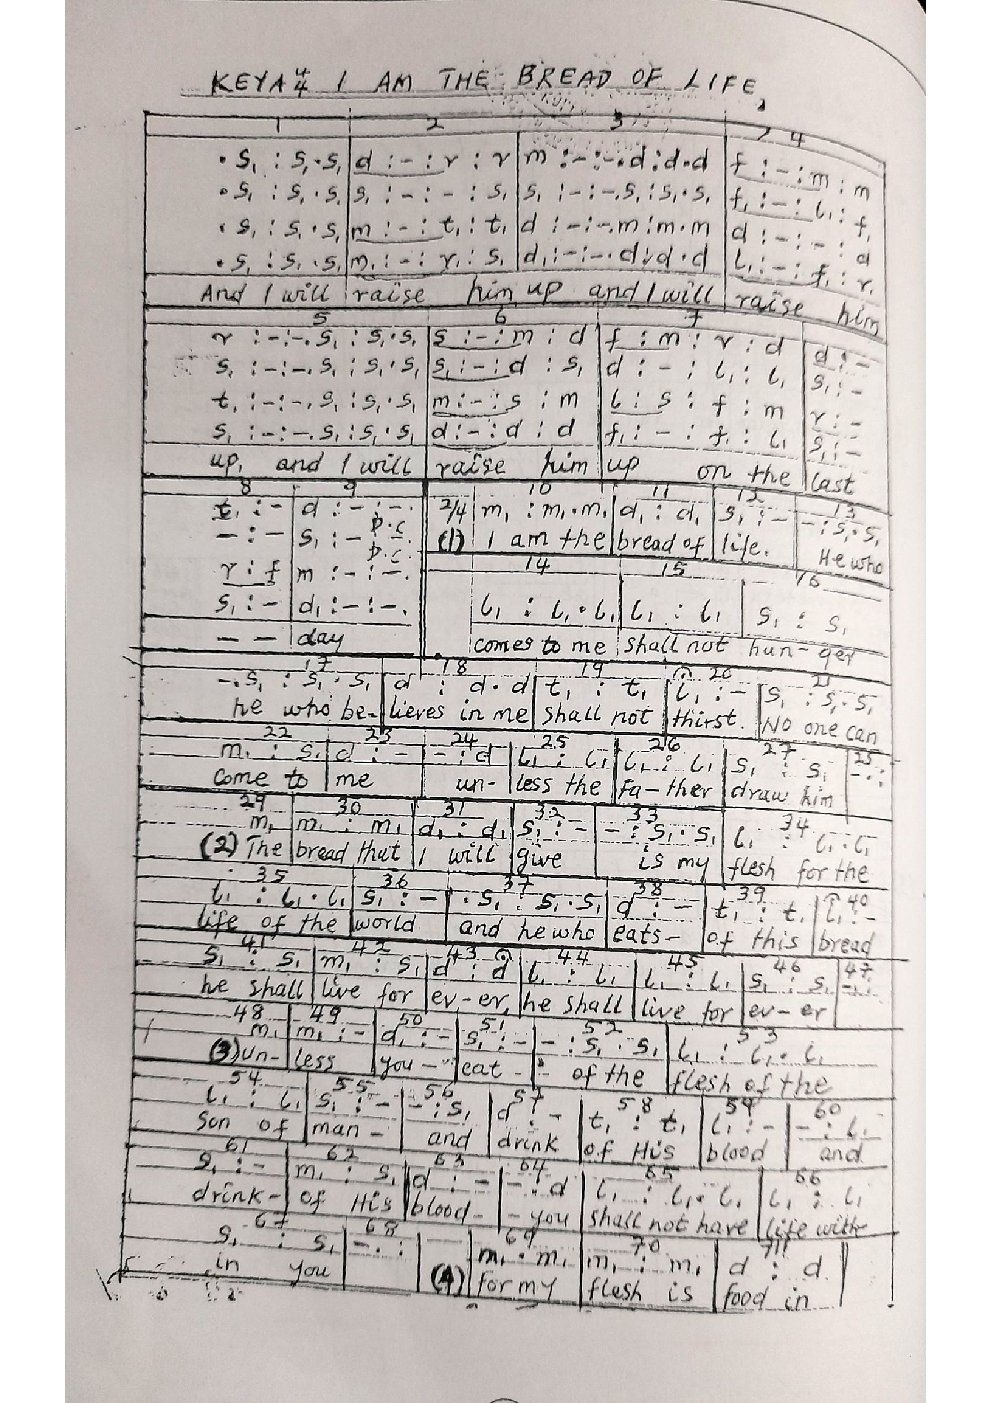 KEYA 4/4 I AM THE BREAD OF LIFE
1 2 3 4
. s₁ : s₁ . s₁ | d : - : r : r | m : - : - . d : d . d | f : - : m : m
. s₁ : s₁ . s₁ | s₁ : - : - : s₁ | s₁ : - : - . s₁ : s₁ . s₁ | f₁ : - : l₁ : f₁
. s₁ : s₁ . s₁ | m : - : t₁ : t₁ | d : - : - . m : m . m | d : - : - : d
. s₁ : s₁ . s₁ | m₁ : - : r₁ : s₁ | d₁ : - : - . d : d . d | l₁ : - : f₁ : r₁
And I will raise him up and I will raise him
5 6 7
r : - : - . s₁ : s₁ . s₁ | s : - : m : d | f : m : r : d | d : -
s₁ : - : - . s₁ : s₁ . s₁ | s₁ : - : d : s₁ | d : - : l₁ : l₁ | s₁ : -
t₁ : - : - . s₁ : s₁ . s₁ | m : - : s : m | l : s : f : m | r : -
s₁ : - : - . s₁ : s₁ . s₁ | d : - : d : d | f₁ : - : f₁ : l₁ | s₁ : -
up, and I will raise him up on the last
8 9
t₁ : - | d : - : - .
- : - | s₁ : - D.C
D.C.
r : f | m : - : - .
s₁ : - | d₁ : - : - .
- - day
10 11 12 13
2/4 m₁ : m₁ . m₁ | d₁ : d₁ | s₁ : - | - : s₁ . s₁
(1) I am the bread of life. He who
14 15 16
l₁ : l₁ . l₁ | l₁ : l₁ | s₁ : s₁
comes to me shall not hun-ger
17 18 19 20 21
- . s₁ : s₁ . s₁ | d : d . d | t₁ : t₁ | l₁ : - | s₁ : s₁ . s₁
he who be- lieves in me shall not thirst. No one can
22 23 24 25 26 27 28
m₁ : s₁ | d : - | - : d | l₁ : l₁ | l₁ : l₁ | s₁ : s₁ | - . :
come to me un- less the Fa-ther draw him
29 30 31 32 33 34
m₁ | m₁ : m₁ | d₁ : d₁ | s₁ : - | - : s₁ . s₁ | l₁ : l₁ . l₁
(2) The bread that I will give is my flesh for the
35 36 37 38 39 40
l₁ : l₁ . l₁ | s₁ : - | . s₁ : s₁ . s₁ | d : - | t₁ : t₁ | l₁ : -
life of the world and he who eats- of this bread
41 42 43 44 45 46 47
s₁ : s₁ | m₁ : s₁ | d : d | l₁ : l₁ | l₁ : l₁ | s₁ : s₁ | - . :
he shall live for ev-er, he shall live for ev-er
48 49 50 51 52 53
m₁ | m₁ : - | d₁ : - | s₁ : - | - : s₁ . s₁ | l₁ : l₁ . l₁
(3) un- less you - eat - of the flesh of the
54 55 56 57 58 59 60
l₁ : l₁ | s₁ : - | - : s₁ | d : - | t₁ : t₁ | l₁ : - | - : l₁
Son of man - and drink of His blood and
61 62 63 64 65 66
s₁ : - | m₁ : s₁ | d : - | - : d | l₁ : l₁ . l₁ | l₁ : l₁
drink- of His blood - - you shall not have life with
67 68 69 70 71
s₁ : s₁ | - . : | m₁ . m₁ | m₁ : m₁ | d : d
in you (4) for my flesh is food in